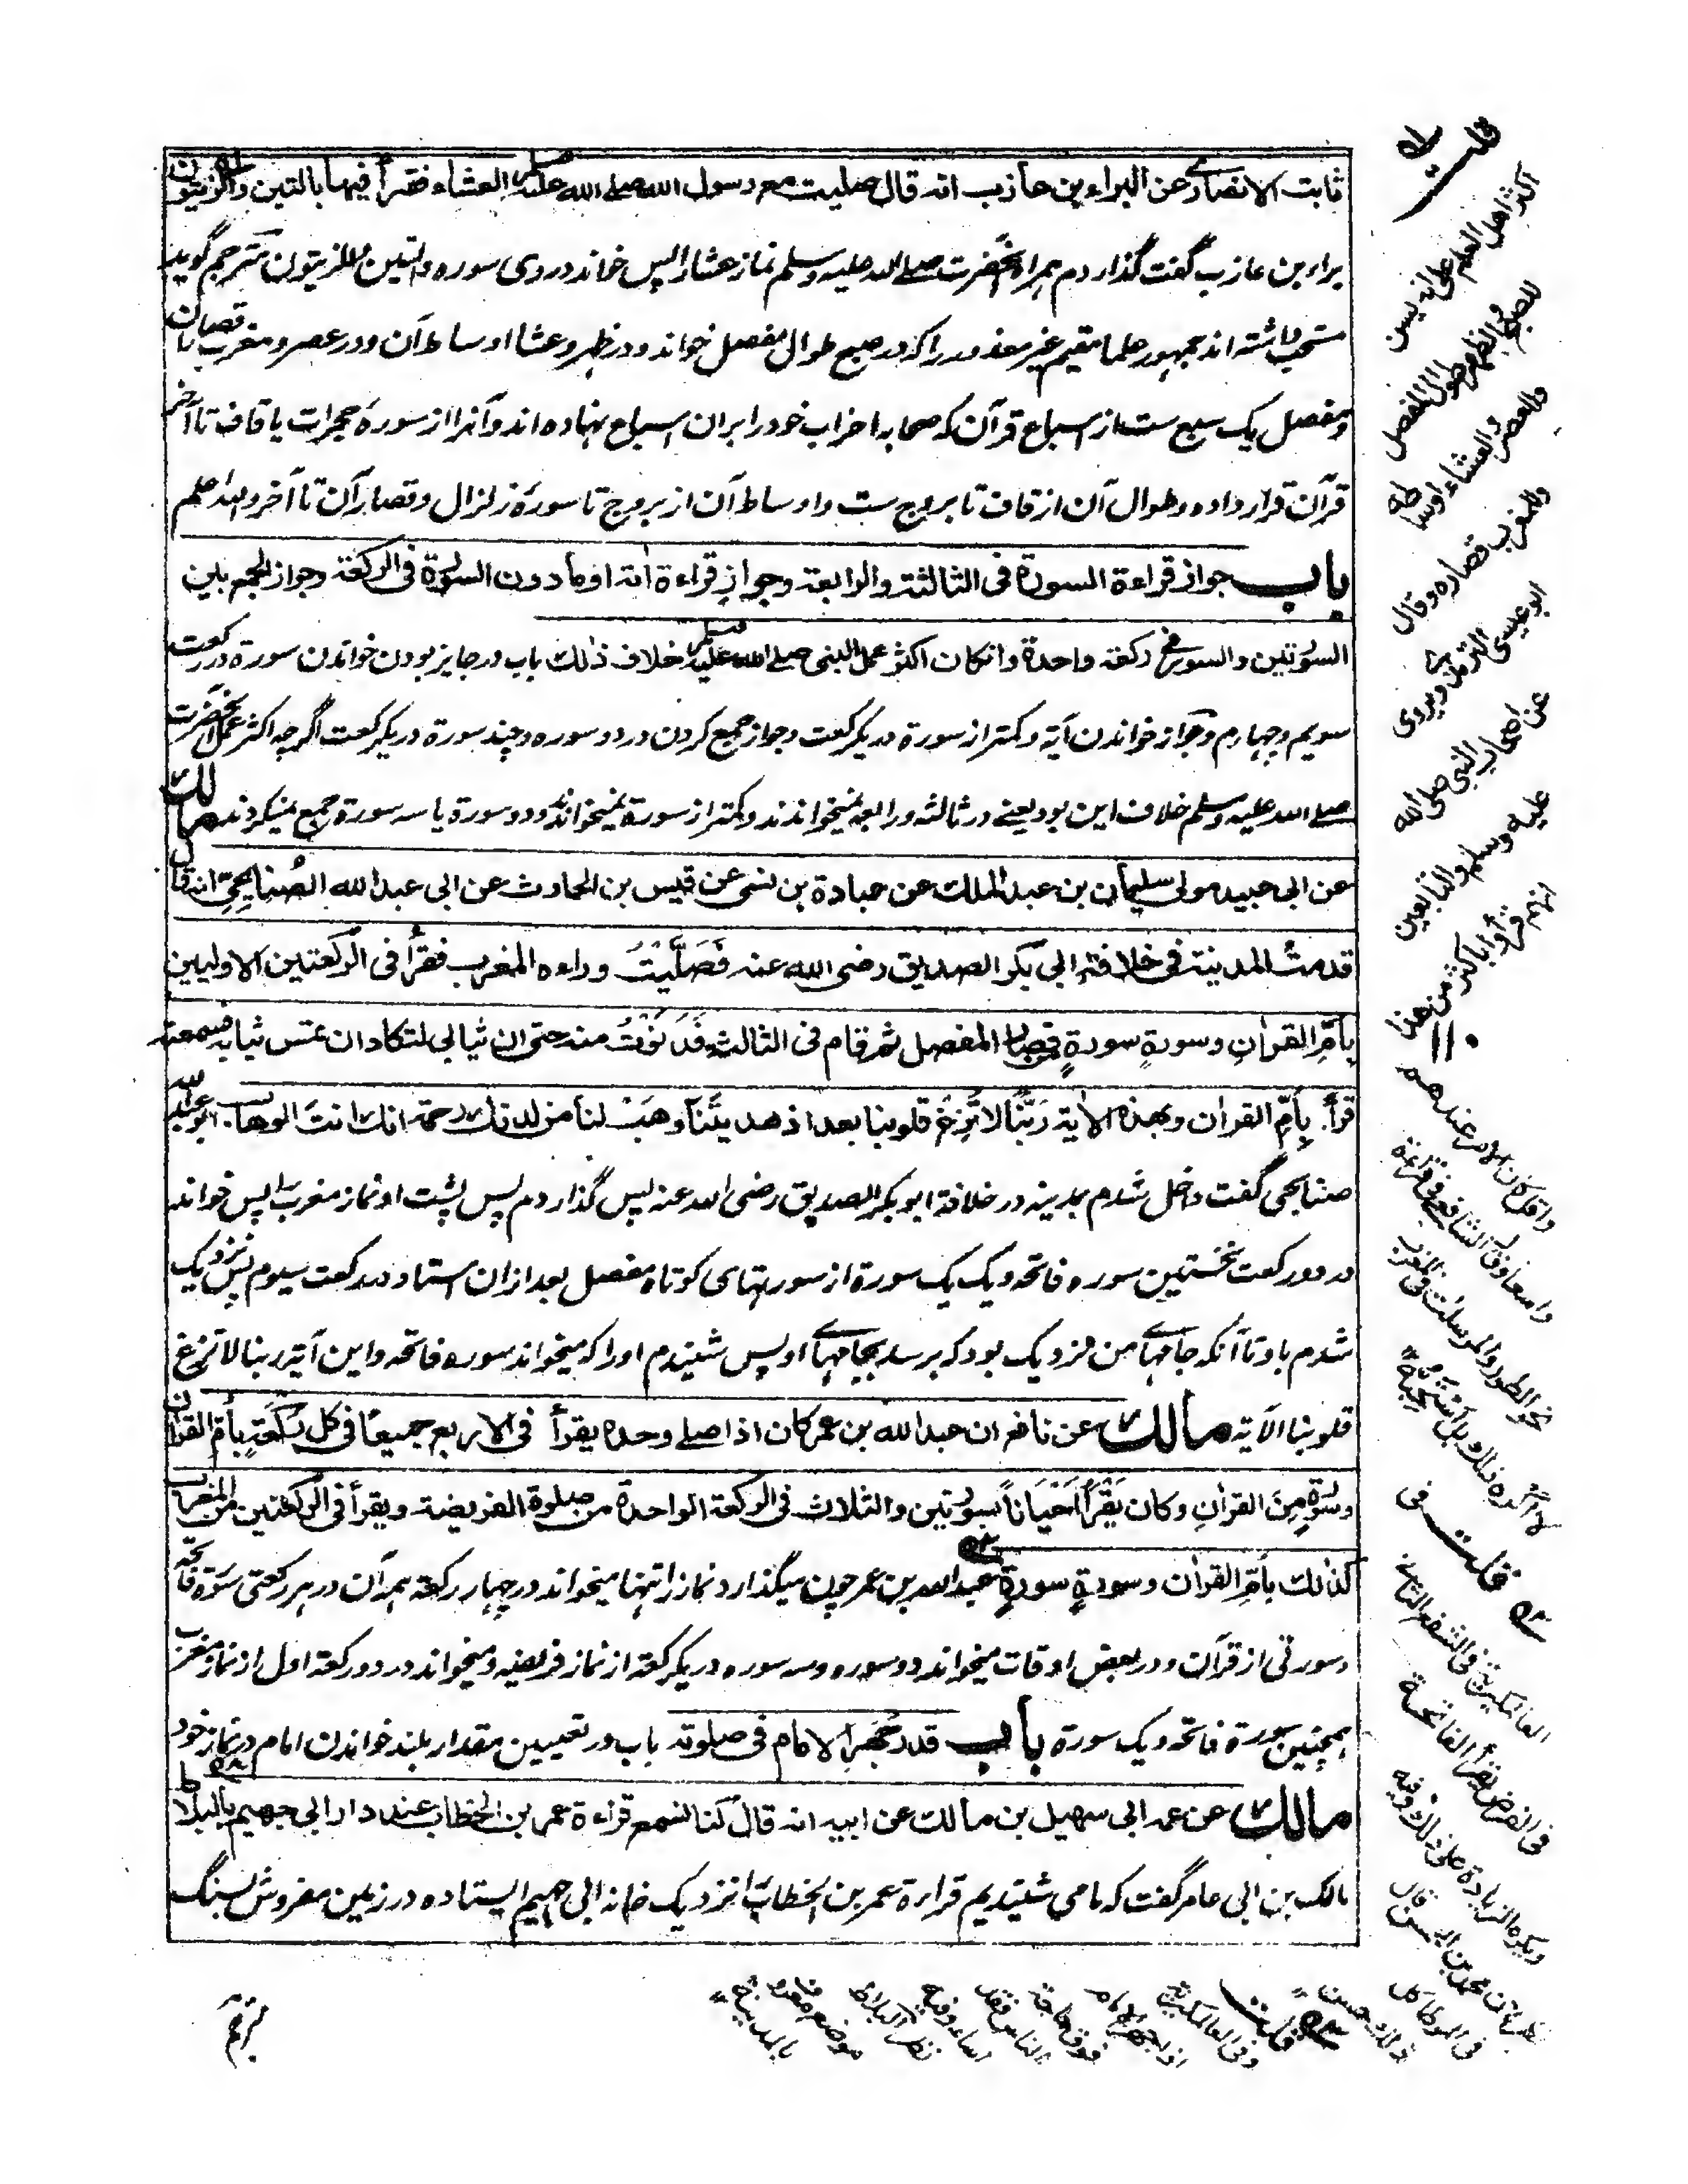 ثابت الانصاری عن البراء بن عازب انه قال صلیت مع رسول الله صلے الله علیه وسلم العشاء فقرأ فیها بالتین والزیتون
براء بن عازب گفت گذاردم همراه آنحضرت صلے الله علیه وسلم نماز عشا را پس خواند در وی سوره والتین والزیتون مترجم گوید
مستحب داشته اند جمهور علما مقیم غیر معذور را که در صبح طوال مفصل خواند و در ظهر و عشا اوساط آن و در عصر و مغرب قصار آن
و مفصل یک سبع ست از اسباع قرآن که صحابه احزاب خود را بران اسباع نهاده اند و آنرا از سورهٔ حجرات یا قاف تا آخر
قرآن قرار داده و طوال آن از قاف تا بروج ست و اوساط آن از بروج تا سورهٔ زلزال و قصار آن تا آخر والله اعلم
باب جواز قراءة السورة فی الثالثة والرابعة وجواز قراءة اٰیة او ما دون السورة فی الرکعة وجواز الجمع بین
السورتین والسور فی رکعة واحدة وان کان اکثر عمل النبی صلے الله علیه وسلم خلاف ذٰلك باب در جایز بودن خواندن سورة در رکعت
سویم و چهارم و جواز خواندن آیة و کمتر از سورة در یک رکعت و جواز جمع کردن در دو سوره و چند سورة در یک رکعت اگرچه اکثر عمل آنحضرت
صلے الله علیه وسلم خلاف این بود یعنے در ثالثه و رابعه نمیخواندند و کمتر از سورة نمیخواندند و دو سورة یا سه سورة جمع نمیکردند مالك
عن ابی عبید مولی سلیمان بن عبد الملك عن عبادة بن نسی عن قیس بن الحارث عن ابی عبد الله الصُنابِحِیّ انه قال
قدمتُ المدینة فی خلافة ابی بکر الصدیق رضی الله عنه فَصَلَّیْتُ وراءه المغرب فقرأ فی الرکعتین الاولیین
بِاُمِّ القرانِ وسورةٍ سورةٍ من قصار المفصل ثم قام فی الثالثة فَدَنَوْتُ منه حتی ان ثیابی لتکاد ان تمس ثیابه فسمعته
قرأ بِاُمِّ القران وبهذه الاٰیة رَبَّنَا لا تُزِغْ قلوبنا بعد اذ هدیتَنَا وهَبْ لنا من لدنك رحمة انك انتَ الوهاب ابو عبد الله
صنابحی گفت داخل شدم بمدینه در خلافة ابوبکر الصدیق رضی الله عنه پس گذاردم پس پشت او نماز مغرب را پس خواند
در دو رکعت نخستین سوره فاتحه و یک یک سورة از سورتهای کوتاه مفصل بعد ازان استاد در رکعت سیوم پس نزدیک
شدم باو تا آنکه جامهاے من نزدیک بود که برسد بجامهاے او پس شنیدم او را که میخواند سوره فاتحه و این آیة ربنا لا تزغ
قلوبنا الآیة مالك عن نافع ان عبد الله بن عمر کان اذا صلے وحده یقرأ فی الاربع جمیعًا فی کل رکعةٍ بأم القراٰن
وسورةٍ مِنَ القراٰنِ وکان یَقْرَأُ اَحْیَاناً بسورتین والثلاث فی الرکعة الواحدة من صلوة الفریضة ویقرأ فی الرکعتین من المغرب
کذٰلك بأمِّ القراٰن وسورةٍ سورةٍ عبدالله بن عمر چون میگذارد نماز را تنها میخواند در چهار رکعة همه آن در هر رکعتی سورة فاتحه
و سورتی از قرآن و در بعض اوقات میخواند دو سوره و سه سوره در یک رکعة از نماز فریضه و میخواند در دو رکعة اول از نماز مغرب
همچنین سورة فاتحه و یک سورة باب قدر جَهْرِ الامام فی صلوته باب در تعیین مقدار بلند خواندن امام در نماز خود
مالك عن عمه ابی سهیل بن مالك عن ابیه انه قال کنا نسمع قراءة عمر بن الخطاب عند دار ابی جهیم بالبلاط
مالک بن ابی عامر گفت که ما می شنیدیم قراءة عمر بن الخطاب را نزدیک خانه ابی جهیم ایستاده در زمین مفروش بسنگ
قلت
اکثر اهل العلم علی انه یسن
للصبح والظهر طوال المفصل
والعصر والعشاء اوساطه
وللمغرب قصاره وقال
ابو عیسی الترمذی ویروی
عن اصحاب النبی صلی الله
علیه وسلم والتابعین
انهم قرأوا باکثر من هذا
واقل کان الامر عندهم
واسعا وقال الشافعی فی قراءة
نحو الطور والمرسلات فی المغرب
لا اکره ذلك بل استحبه
قلت فی
العالمگیریة فی الشفع الثانی
فی الفرض یقرأ الفاتحة
ویکره الزیادة علی ذلك وفیه
فی الموطا کل
ذلك حسن
قلت
وفی العالمگیریة
اذا جهر الامام
فوق حاجة
الناس فقد
اساء وفیه
ذکر البلاط
موضع معروف
بالمدینة